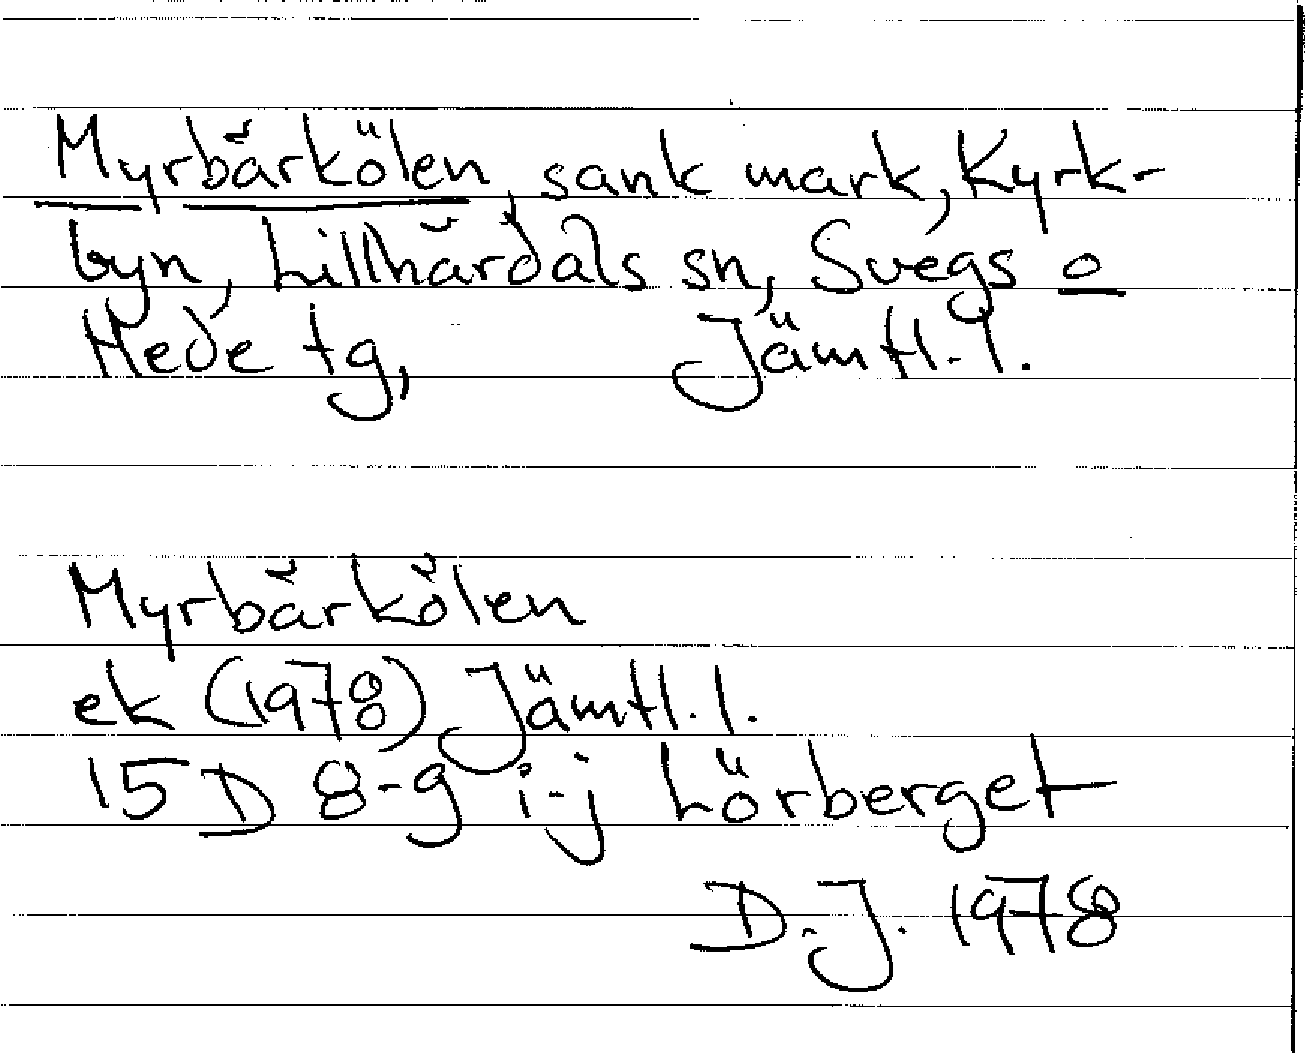 Myrbärkölen, sank mark, Kyrk-
byn, Lillhärdals sn, Svegs o
Hede tg, Jämtl. l.
Myrbärkölen
ek (1978) Jämtl. l.
15 D 8-9 i-j Lörberget
D.J. 1978